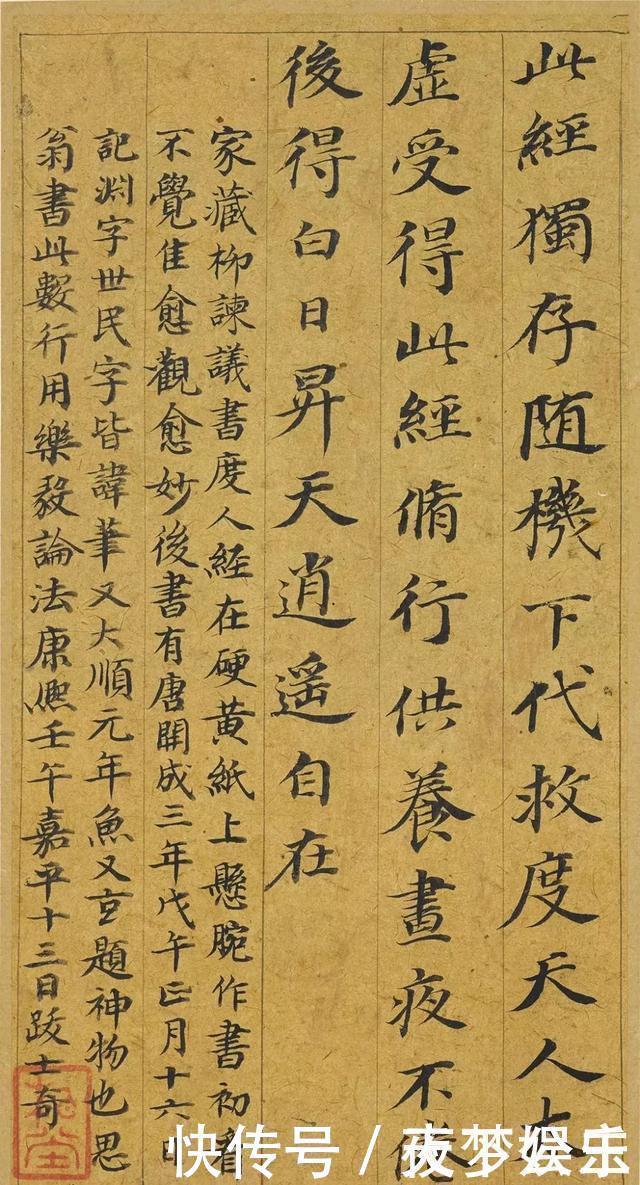 此經獨存随機下代救度天人
虛受得此經脩行供養晝夜不
後得白日昇天逍遥自在
家藏柳諫議書度人經在硬黃紙上懸腕作書初看
不覺佳愈觀愈妙後書有唐開成三年戊午正月十六日
記淵字世民字皆諱筆又大順元年魚又玄題神物也思
翁書此數行用樂毅論法康熙壬午嘉平十三日跋士奇
快传号/夜梦娱乐